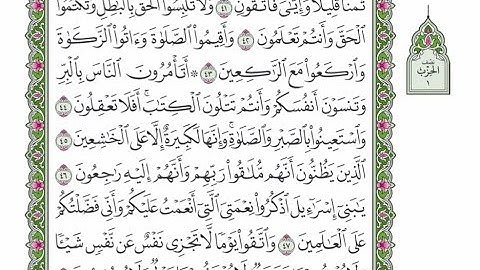 ثَمَنًا قَلِيلًا وَإِيَّٰيَ فَٱتَّقُونِ ٤١ وَلَا تَلْبِسُوا۟ ٱلْحَقَّ بِٱلْبَٰطِلِ وَتَكْتُمُوا۟
ٱلْحَقَّ وَأَنتُمْ تَعْلَمُونَ ٤٢ وَأَقِيمُوا۟ ٱلصَّلَوٰةَ وَءَاتُوا۟ ٱلزَّكَوٰةَ
وَٱرْكَعُوا۟ مَعَ ٱلرَّٰكِعِينَ ٤٣ ۞ أَتَأْمُرُونَ ٱلنَّاسَ بِٱلْبِرِّ
وَتَنسَوْنَ أَنفُسَكُمْ وَأَنتُمْ تَتْلُونَ ٱلْكِتَٰبَ ۚ أَفَلَا تَعْقِلُونَ ٤٤
وَٱسْتَعِينُوا۟ بِٱلصَّبْرِ وَٱلصَّلَوٰةِ ۚ وَإِنَّهَا لَكَبِيرَةٌ إِلَّا عَلَى ٱلْخَٰشِعِينَ ٤٥
ٱلَّذِينَ يَظُنُّونَ أَنَّهُم مُّلَٰقُوا۟ رَبِّهِمْ وَأَنَّهُمْ إِلَيْهِ رَٰجِعُونَ ٤٦
يَٰبَنِىٓ إِسْرَٰٓءِيلَ ٱذْكُرُوا۟ نِعْمَتِىَ ٱلَّتِىٓ أَنْعَمْتُ عَلَيْكُمْ وَأَنِّى فَضَّلْتُكُمْ
عَلَى ٱلْعَٰلَمِينَ ٤٧ وَٱتَّقُوا۟ يَوْمًا لَّا تَجْزِى نَفْسٌ عَن نَّفْسٍ شَيْـًٔا
نصف
الحزب
١